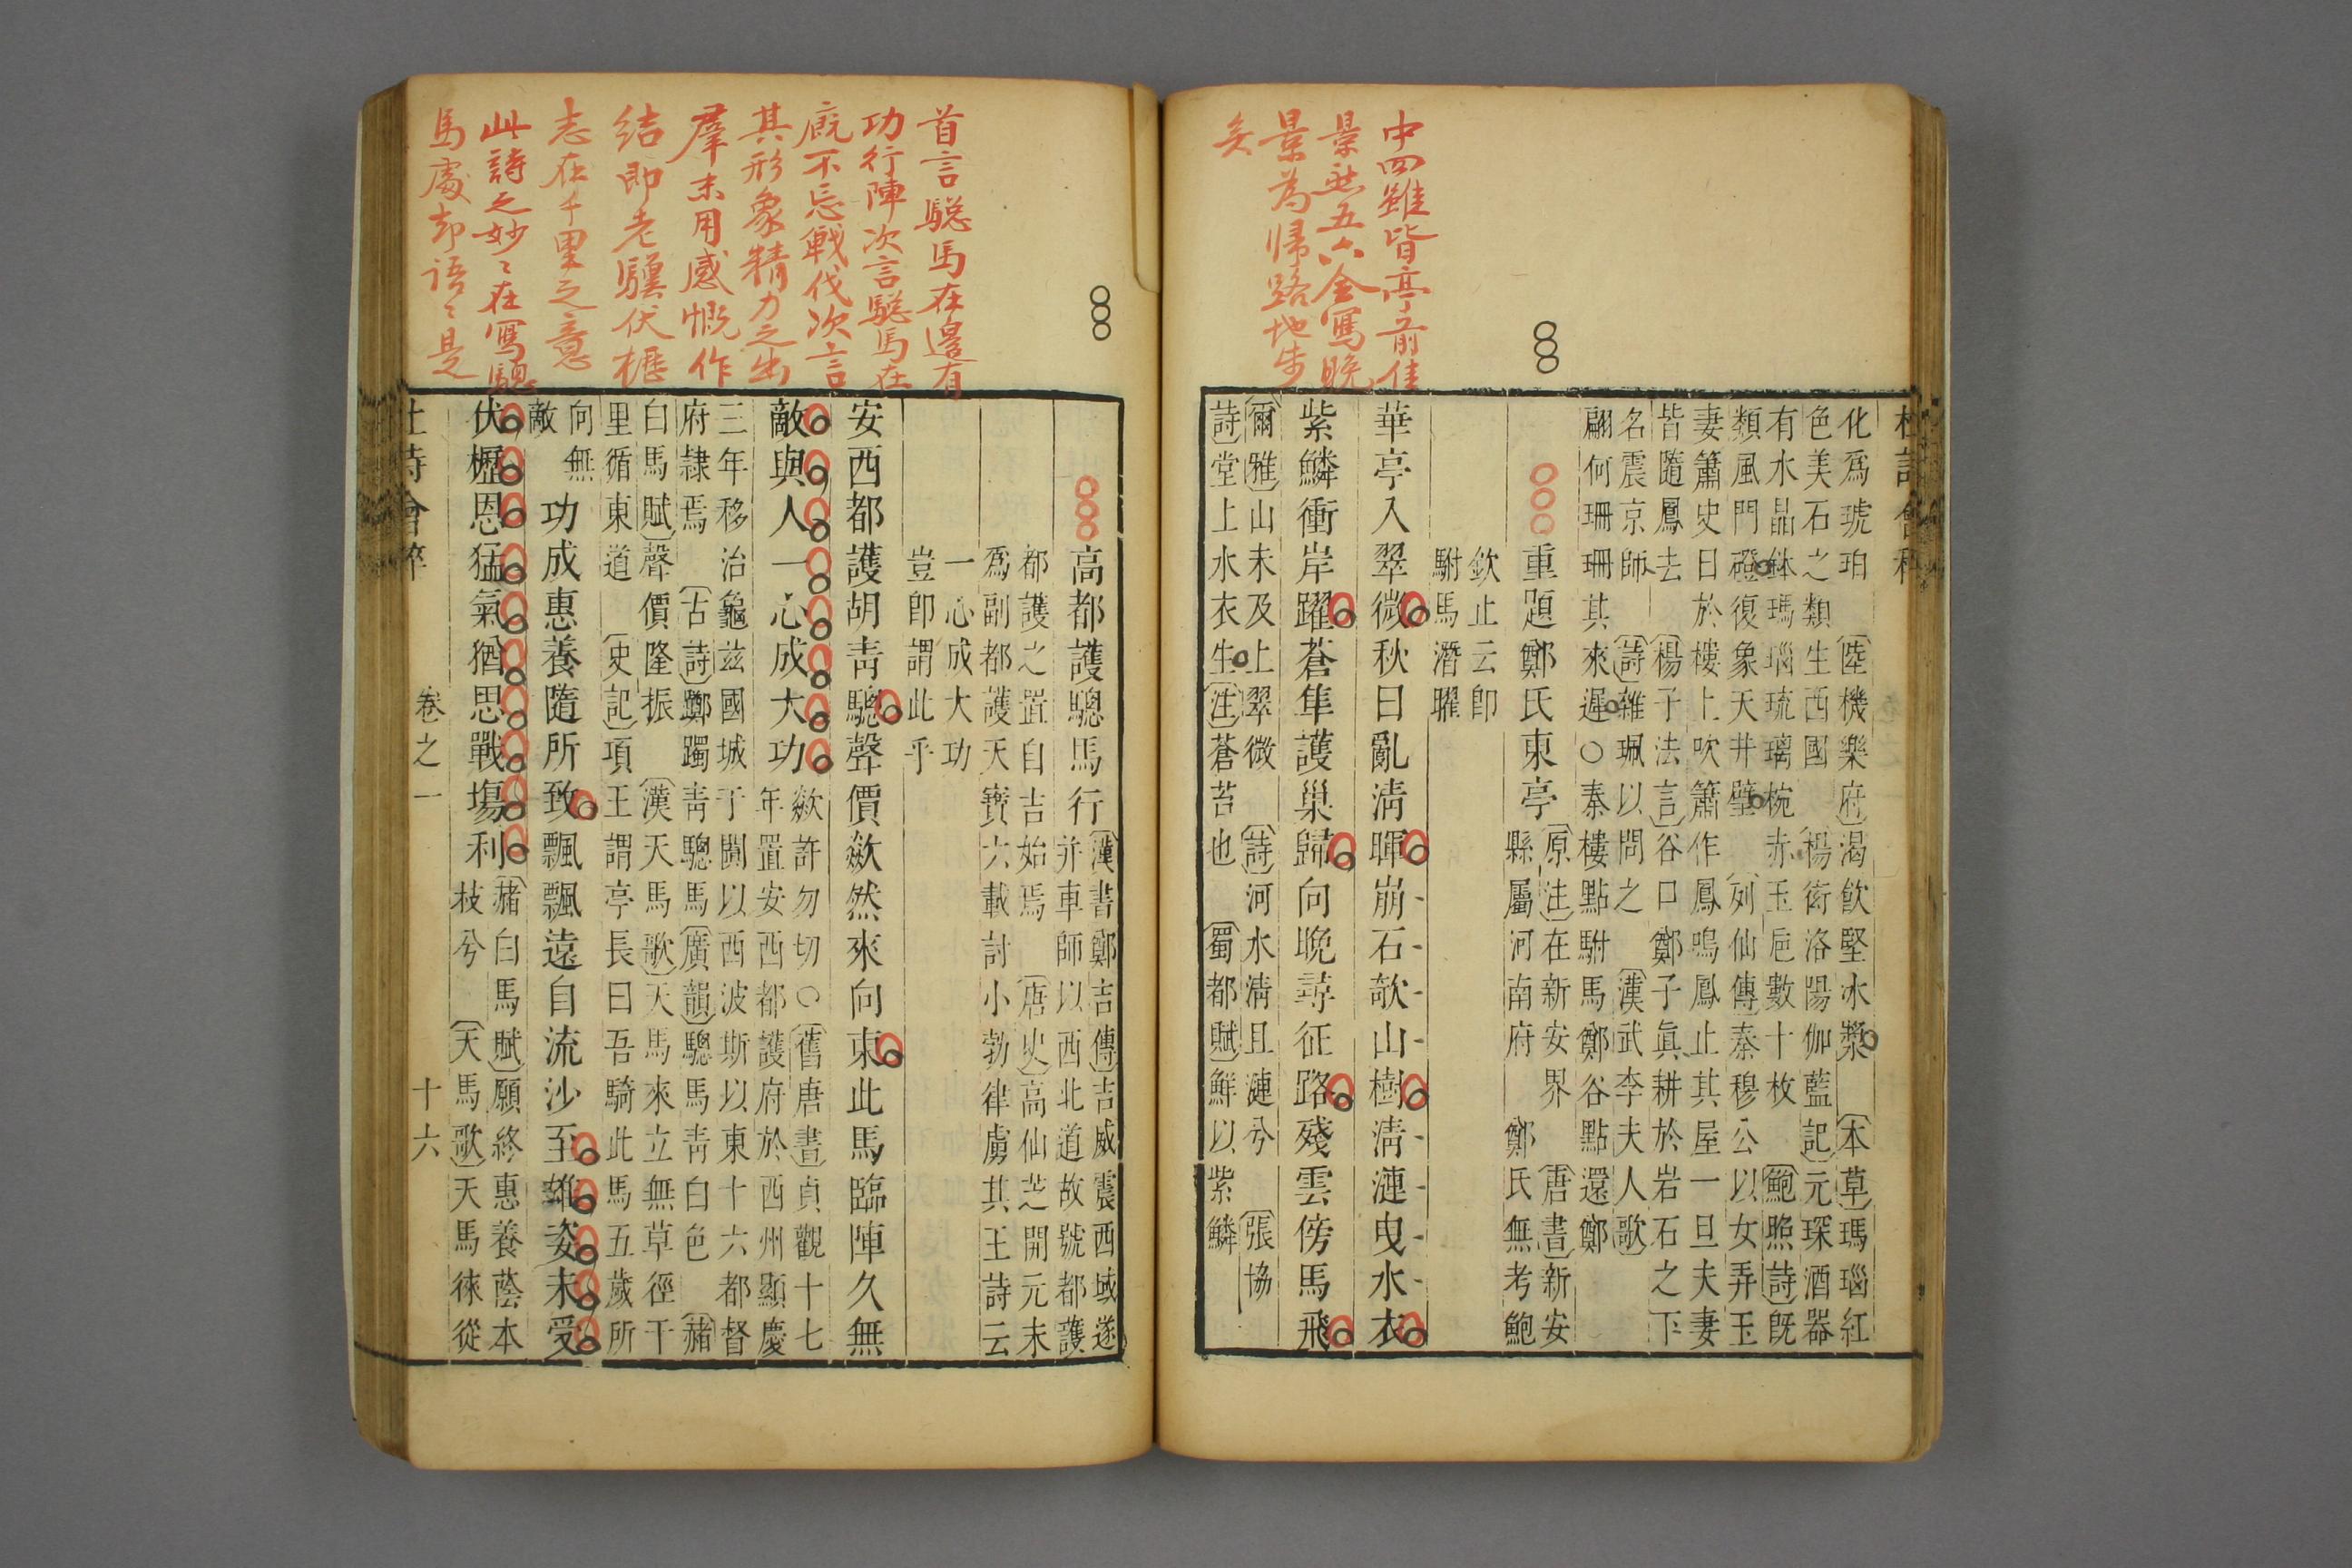 中四雖皆亭前佳
景然五六全寫晚
景為歸路地步
矣
化爲琥珀 〔陸機樂府〕渴飲堅冰漿 〔本草〕瑪瑙紅
色美石之類生西國 〔楊衒洛陽伽藍記〕元琛酒器
有水晶鉢瑪瑙琉璃椀赤玉巵數十枚 〔鮑照詩〕旣
類風門磴復象天井壁 〔列仙傳〕秦穆公以女弄玉
妻簫史日於樓上吹簫作鳳鳴鳳止其屋一旦夫妻
皆隨鳳去 〔楊子法言〕谷口鄭子眞耕於岩石之下
名震京師 〔詩〕雜珮以問之 〔漢武李夫人歌〕
翩何珊珊其來遲○秦樓點駙馬鄭谷點還鄭
重題鄭氏東亭
〔原注〕在新安界 〔唐書〕新安
縣屬河南府 鄭氏無考鮑
欽止云卽
駙馬潛曜
華亭入翠微秋日亂淸暉崩石欹山樹淸漣曳水衣
紫鱗衝岸躍蒼隼護巢歸向晚尋征路殘雲傍馬飛
〔爾雅〕山未及上翠微 〔詩〕河水淸且漣兮 〔張協
詩〕堂上水衣生〔注〕蒼苔也 〔蜀都賦〕鮮以紫鱗
首言驄馬在邊有
功行陣次言驄馬在
廐不忘戰伐次言
其形象精力之出
羣末用感慨作
結即老驥伏櫪
志在千里之意
此詩之妙々在寫驄
馬處却語々是
高都護驄馬行
〔漢書鄭吉傳〕吉威震西域遂
幷車師以西北道故號都護
都護之置自吉始焉 〔唐史〕高仙芝開元末
爲副都護天寶六載討小勃律虜其王詩云
一心成大功
豈卽謂此乎
安西都護胡靑驄聲價歘然來向東此馬臨陣久無
敵與人一心成大功
歘許勿切○〔舊唐書〕貞觀十七
年置安西都護府於西州顯慶
三年移治龜兹國城于闐以西波斯以東十六都督
府隷焉 〔古詩〕躑躅靑驄馬〔廣韻〕驄馬靑白色 〔赭
白馬賦〕聲價隆振 〔漢天馬歌〕天馬來立無草徑千
里循東道 〔史記〕項王謂亭長曰吾騎此馬五歲所
向無
敵
功成惠養隨所致飄飄遠自流沙至雄姿未受
伏櫪恩猛氣猶思戰塲利
〔赭白馬賦〕願終惠養蔭本
枝兮 〔天馬歌〕天馬徠從
卷之一 十六